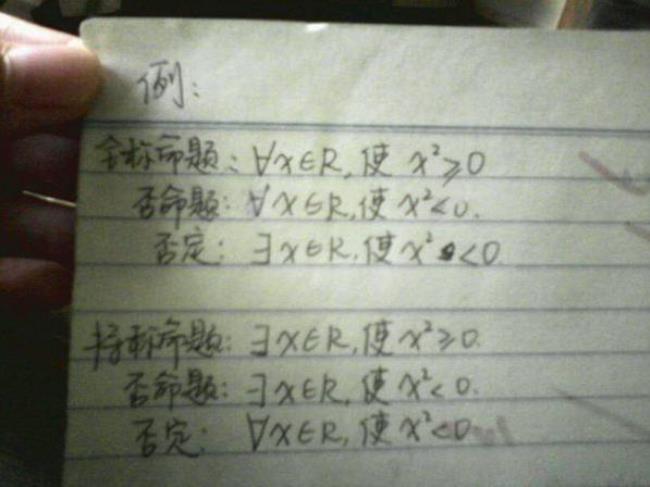 例:
全称命题: ∀x∈R, 使 x²≥0
否命题: ∀x∈R, 使 x²<0.
否定: ∃x∈R, 使 x²<0.
特称命题: ∃x∈R, 使 x²≥0.
否命题: ∃x∈R, 使 x²<0.
否定: ∀x∈R, 使 x²<0